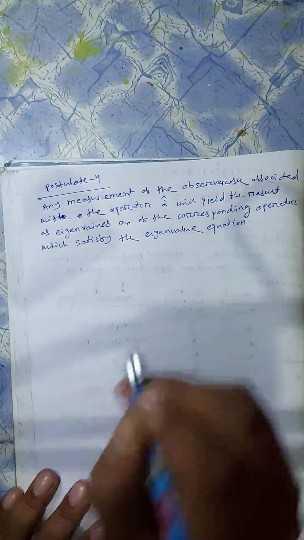 Postulate-4
Any measurement of the observable associated
with the operator Â will yield the result
as eigenvalues an of the corresponding operator
which satisfy the eigenvalue equation